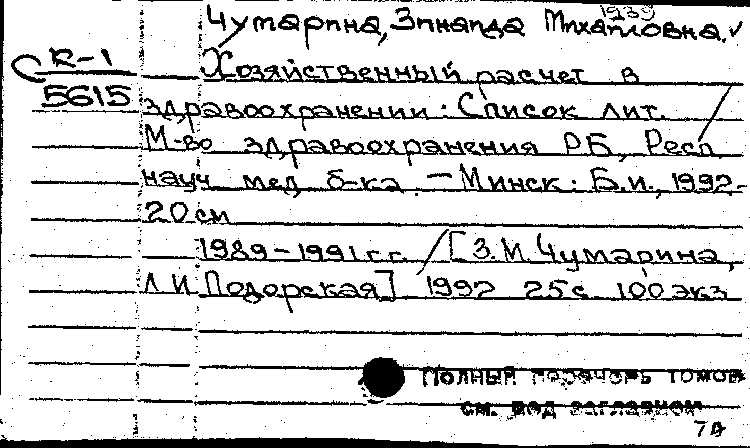 1939
Чумарина, Зинаида Михайловна.
R-1
5615
Хозяйственный расчет в
здравоохранении: Список лит. /
М-во здравоохранения РБ, Респ
науч мед б-ка. — Минск: Б.и., 1992-
20 см
1989-1991 г.г. / [З.М. Чумарина,
Л И Подорская] 1992 25 с 100 экз
Полный перечень томов
см. под заглавием